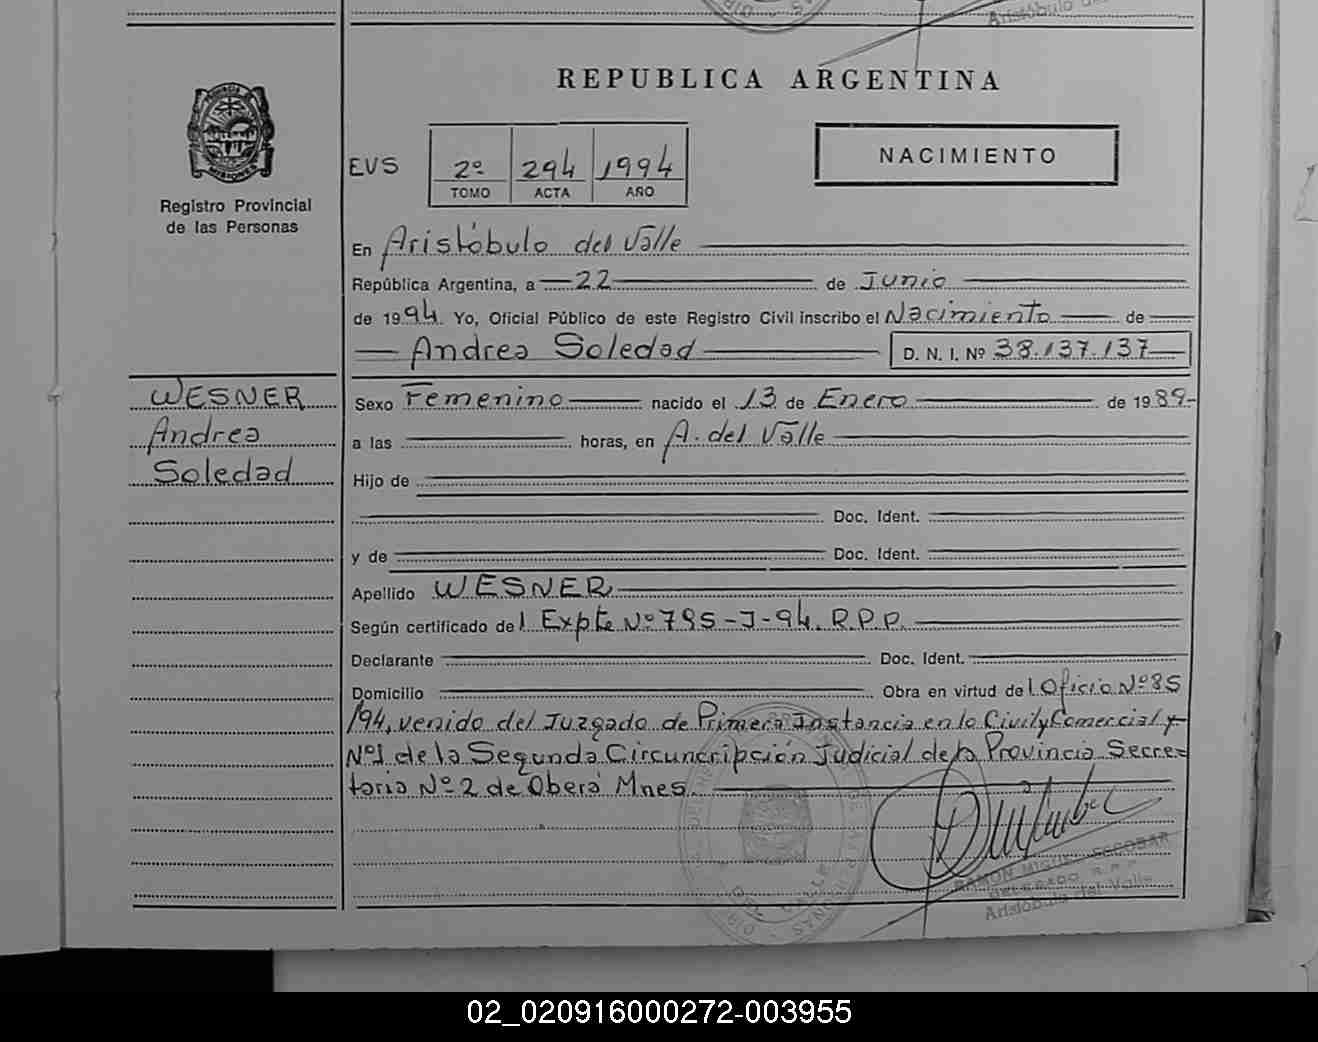 Aristóbulo del
REPUBLICA ARGENTINA
NACIMIENTO
EVS 2º 294 1994
TOMO ACTA AÑO
MISIONES
Registro Provincial
de las Personas
En Aristóbulo del Valle
República Argentina, a 22 de Junio
de 1994 Yo, Oficial Público de este Registro Civil inscribo el Nacimiento de
Andrea Soledad D. N. I. Nº 38.137.137
WESNER
Andrea
Soledad
Sexo Femenino nacido el 13 de Enero de 1989-
a las horas, en A. del Valle
Hijo de
Doc. Ident.
y de Doc. Ident.
Apellido WESNER
Según certificado del Expte Nº 795-J-94. R.P.P.
Declarante Doc. Ident.
Domicilio Obra en virtud del Oficio Nº 85
/94, venido del Juzgado de Primera Instancia en lo Civil y Comercial y
Nº1 de la Segunda Circuncripción Judicial de la Provincia Secre=
taria Nº 2 de Oberá Mnes.
RAMON MIGUEL ESCOBAR
DELEGADO R.P.P.
Aristóbulo del Valle
02_020916000272-003955